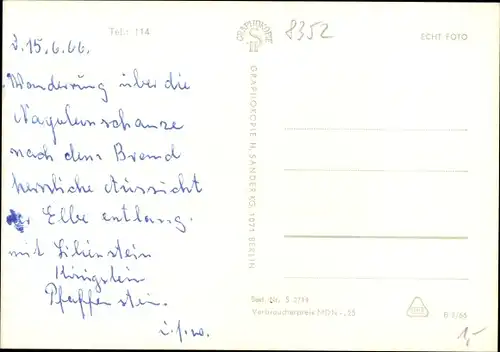 Tel.: 114
d. 15.6.66.
Wanderung über die
Napoleonschanze
nach dem Brand
herrliche Aussicht
der Elbe entlang.
mit Lilienstein
Königstein
Pfaffenstein.
u.s.w.
GRAPHOKOPIE
8352
ECHT FOTO
GRAPHOKOPIE H. SANDER KG 1071 BERLIN
Best. Nr. S 2778
Verbraucherpreis MDN -,25
B 3/66
1,-